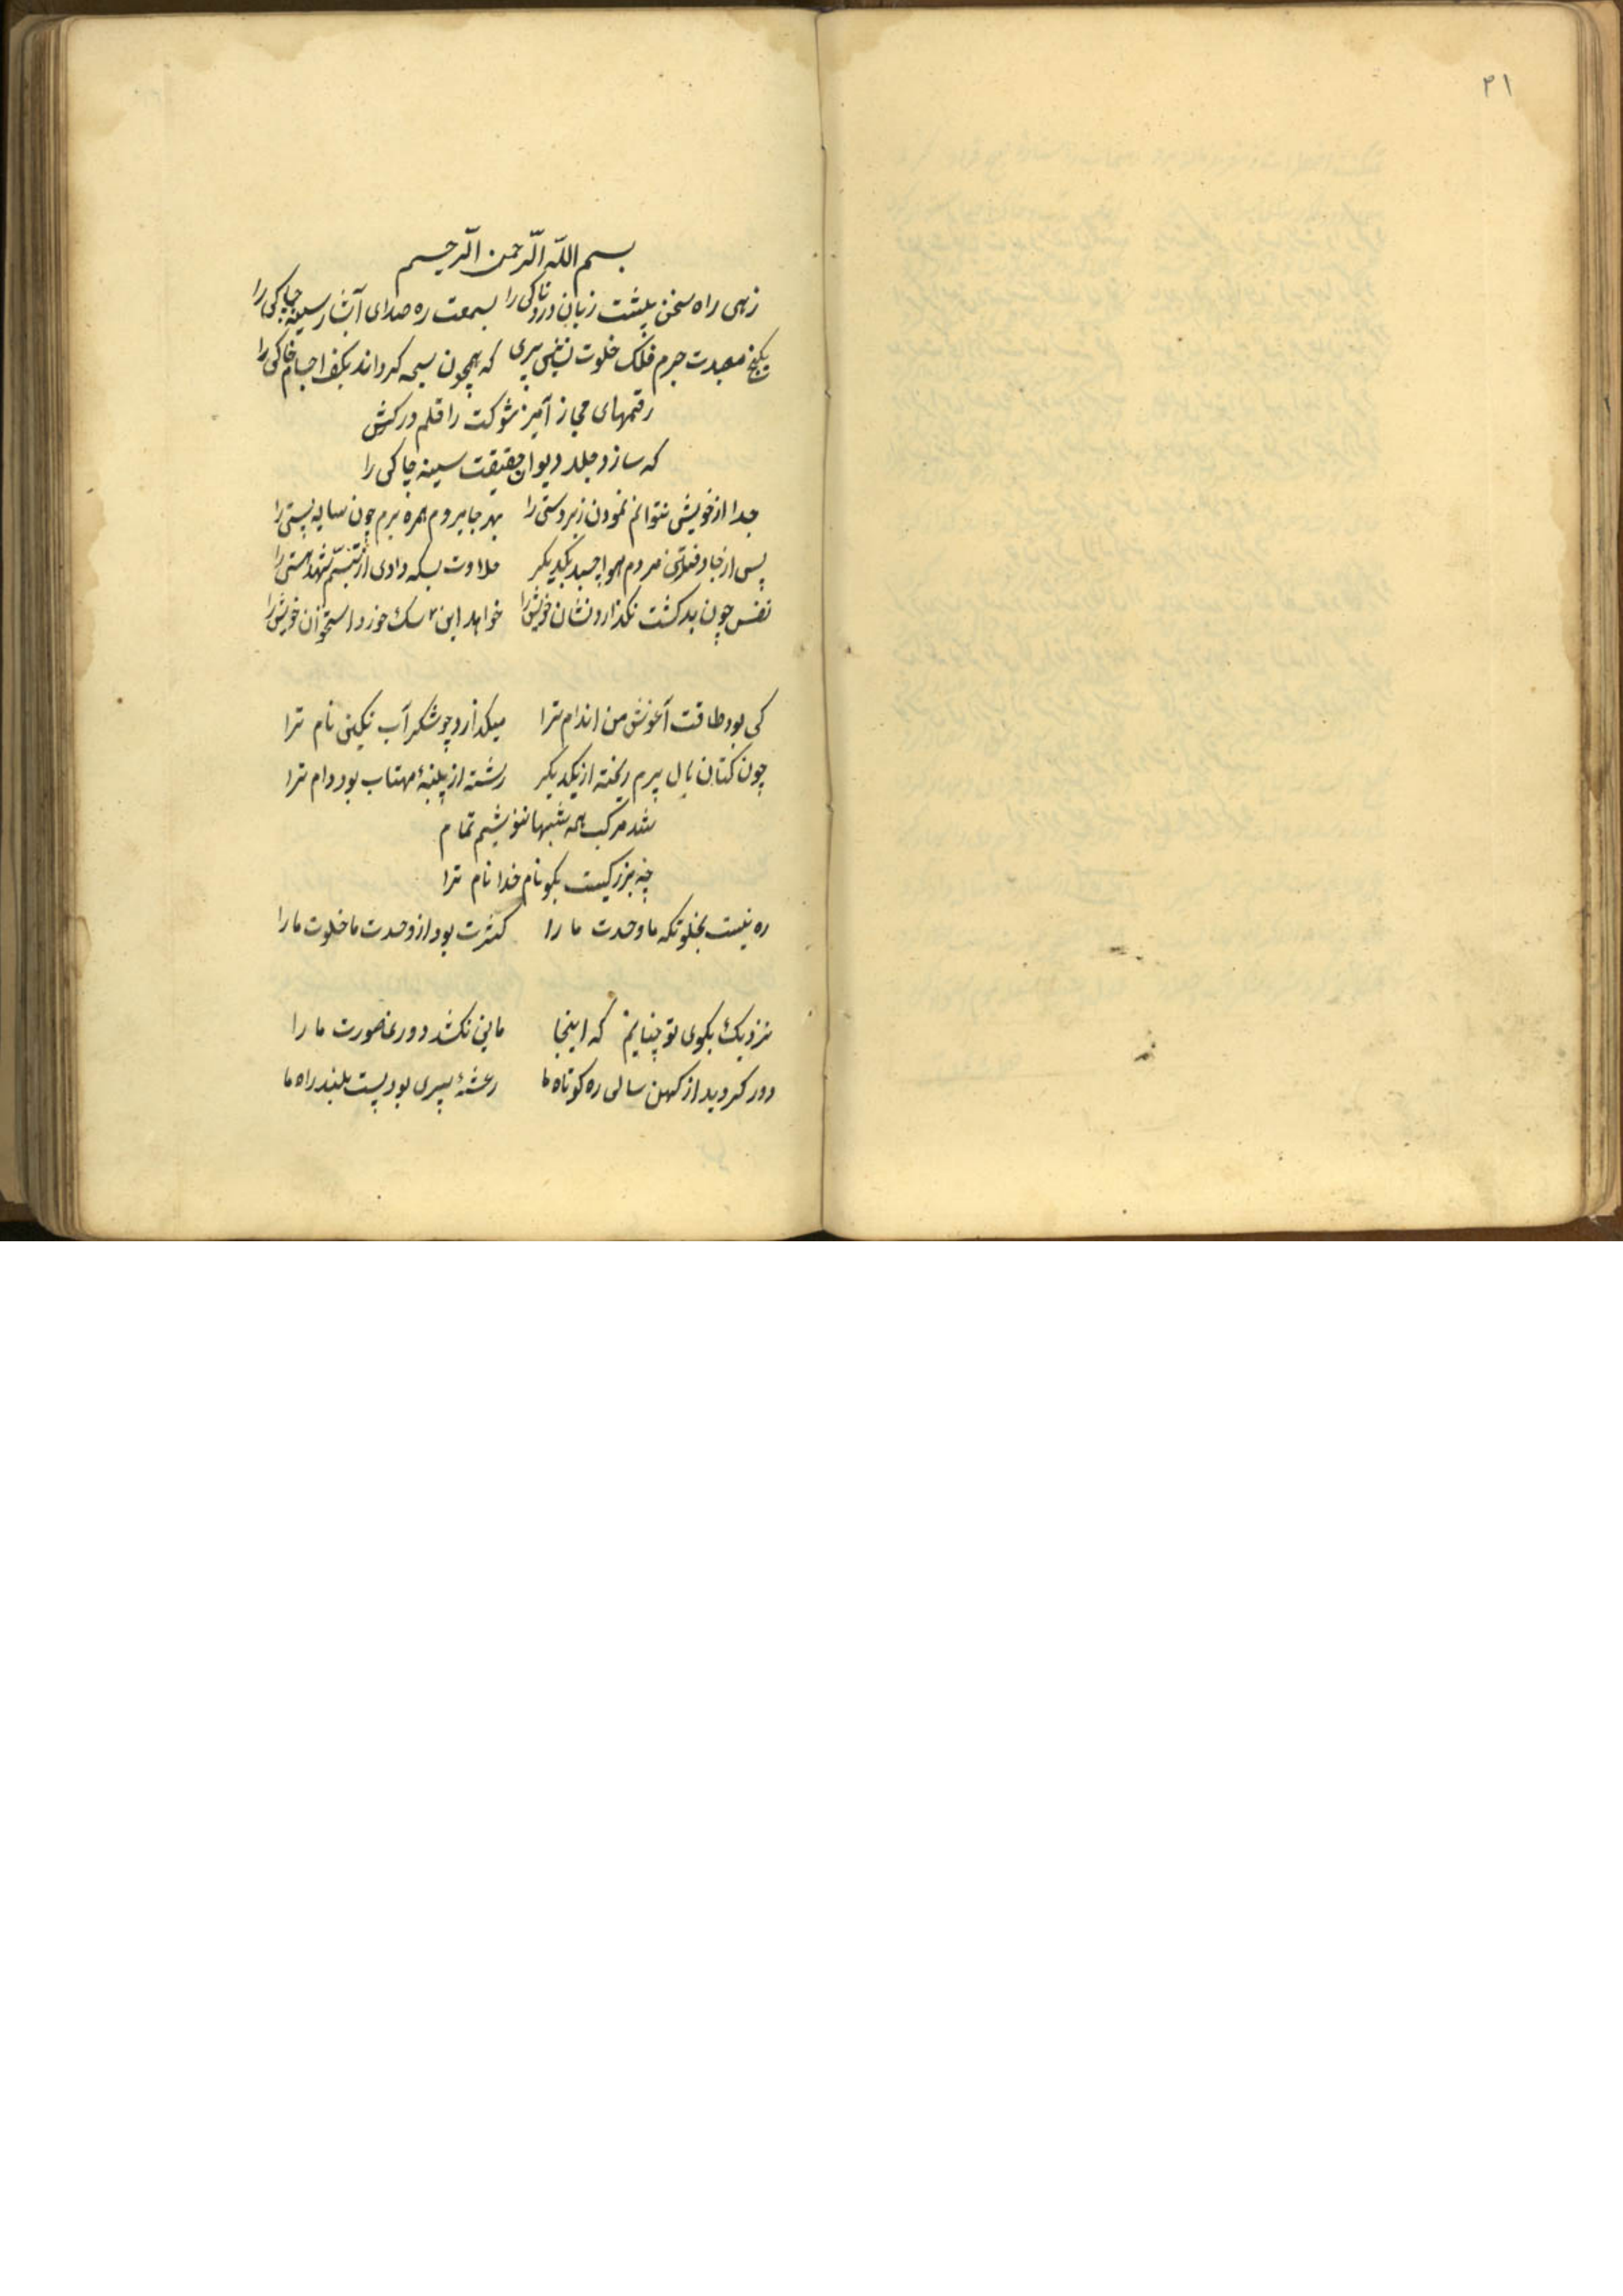 ۲۱
بسم الله الرحمن الرحیم
زهی راه سخن پیشت زبان درد ناکی را بسمعت ره صدای آبشار سینه چاکی را
بکنج معبدت جرم فلک خلوت نشین پیری که همچون سبحه کرداند بکف اجسام خاکی را
رقمهای مجاز آمیز شوکت را قلم درکش
که سازد جلد دیوان حقیقت سینه چاکی را
جدا از خویش نتوانم نمودن زبردستی را بهر جا میروم همره برم چون سایه پستی را
پس از مردم هوا چسبد بیکدیکر حلاوت بسکه دادی از تبسم شهد هستی را
نفس چون بد کشت نکذارد نشان خویش را خواهد این سک خورد استخوان خویش را
کی بود طاقت آغوش من اندام ترا میکدازد چو شکر آب نکین نام ترا
چون کتان بال پرم ریخته از یکدیکر رشته از پنبهٔ مهتاب بود دام ترا
شد مرکب همه شبها ننوشیم تمام
چه بزرکیست بکو نام خدا نام ترا
ره نیست بخلوتکه ما وحدت ما را کثرت بود از وحدت ما خلوت ما را
نزدیک بکوی تو چنانیم که اینجا مانی نکشد دورنما صورت ما را
دور کردید از کهن سالی ره کوتاه ما رعشهٔ پیری بود پست بلند راه ما